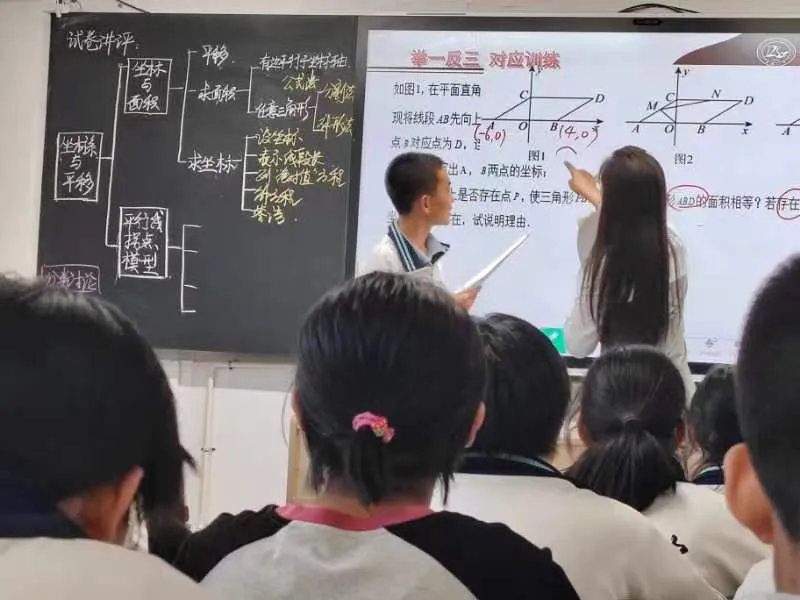 试卷讲评:
坐标系与平移
坐标与面积
平移
求面积
有边平行于坐标轴
任意三角形
公式法
分割法
补形法
求坐标
设坐标
表示线段长
列"绝对值"方程
解方程
平行线拐点模型
分类讨论
举一反三 对应训练
如图1,在平面直角
现将线段AB先向上
点B对应点为D,连
出A,B两点的坐标;
上是否存在点P,使三角形P
形ABD的面积相等?若存在
在,试说明理由.
y
C
D
A
O
B
x
(-6,0)
(4,0)
图1
y
C
N
D
M
A
O
B
x
图2